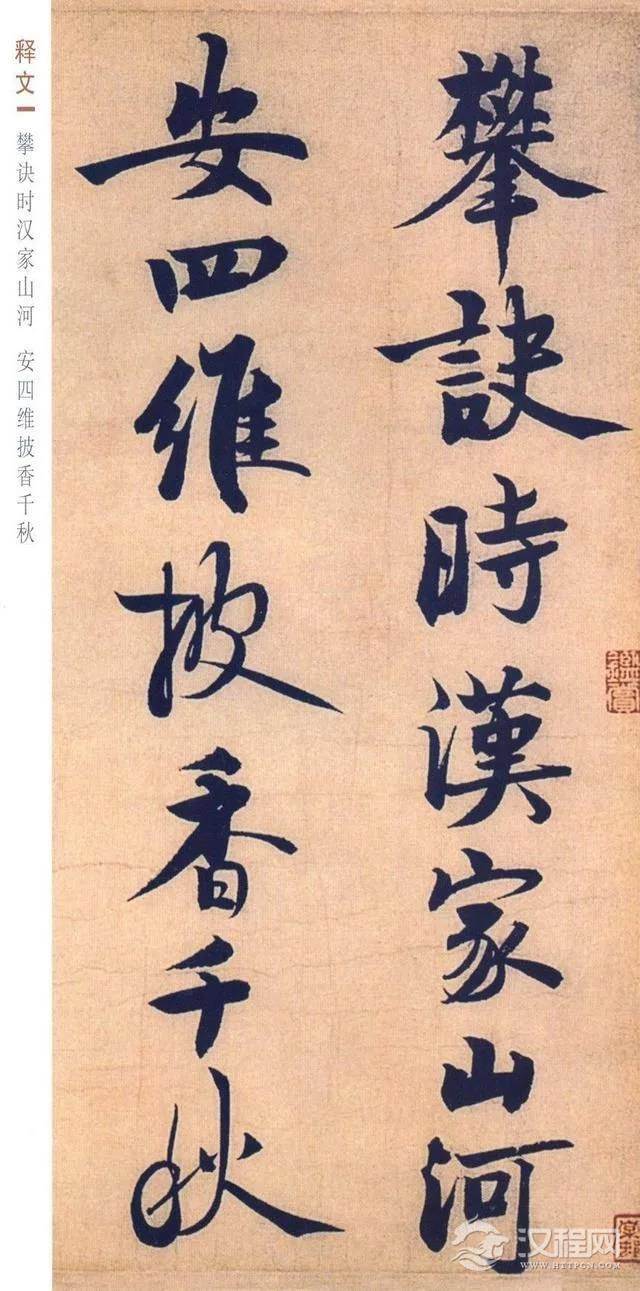 攀訣時漢家山河
安四維披香千秋
释文一 攀诀时汉家山河 安四维披香千秋
鑑賞
汉程网
WWW.HTTPCN.COM